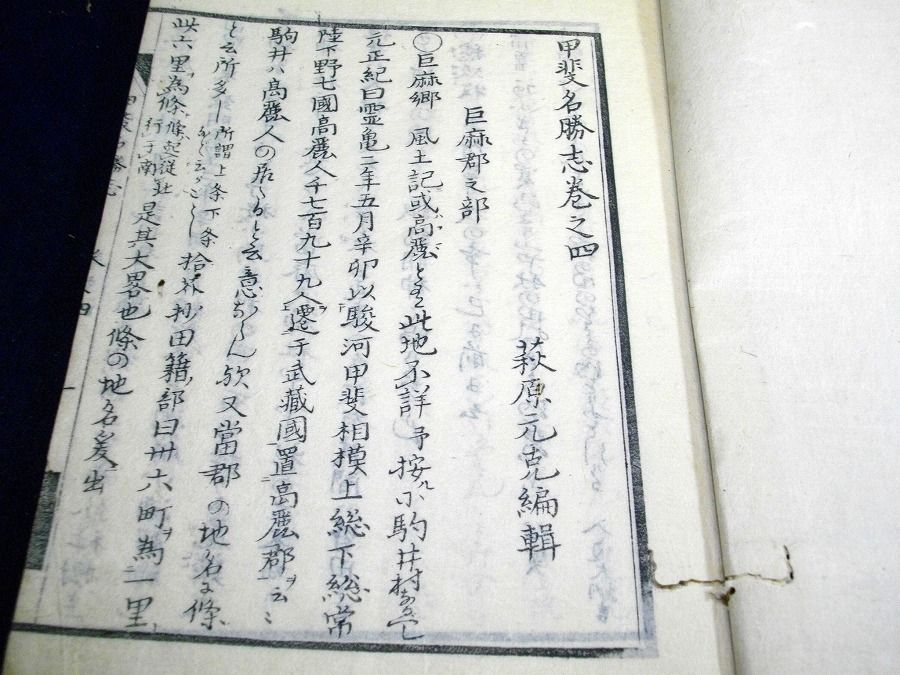 甲斐名勝志巻之四
萩原元克編輯
巨麻郡之部
○巨麻郷 風土記或高麗とす此地不詳予按ルニ駒井村なるべし
元正紀曰霊亀二年五月辛卯以駿河甲斐相模上総下総常
陸下野七國高麗人千七百九十九人遷于武藏國置高麗郡ヲ云ミ
駒井ハ高麗人の居たると云意ならん歟又當郡の地名に條
と云所多し 所謂上条下条 拾芥抄田籍部曰卅六町ヲ為一里
此六里為條條起従 行于南 是其大畧也條の地名爰出